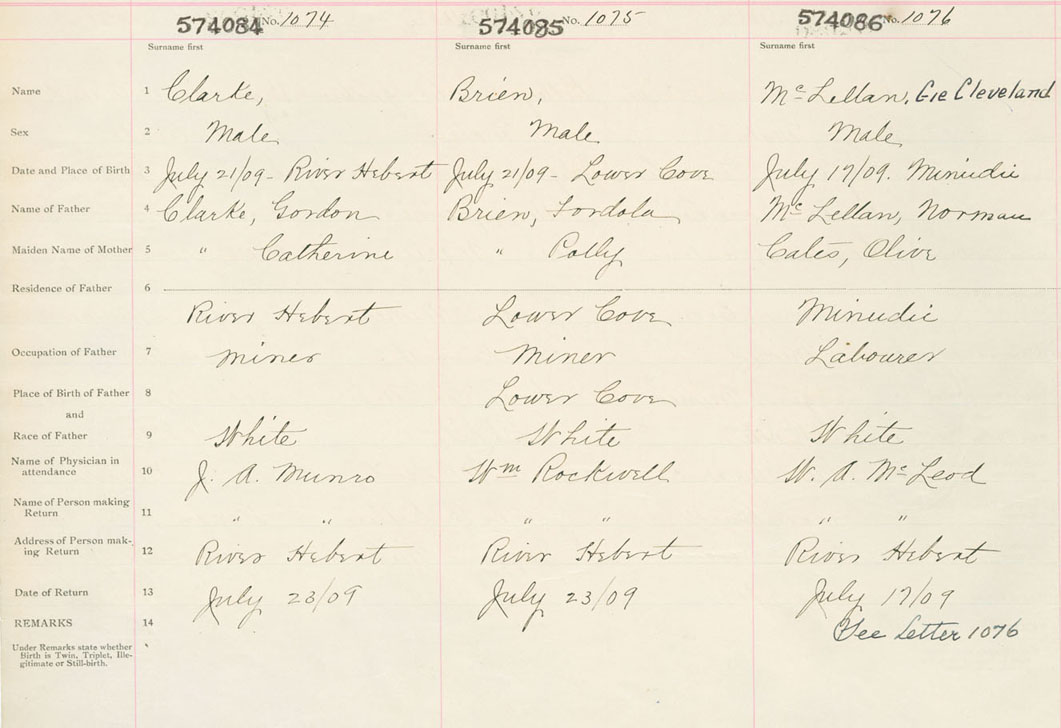 574084 No. 1074 574085 No. 1075 574086 No. 1076
Surname first Surname first Surname first
Name 1 Clarke, Brien, McLellan, Gie Cleveland
Sex 2 Male Male Male
Date and Place of Birth 3 July 21/09 - River Hebert July 21/09 - Lower Cove July 17/09. Minudie
Name of Father 4 Clarke, Gordon Brien, Fordola McLellan, Norman
Maiden Name of Mother 5 " Catherine " Polly Cales, Olive
Residence of Father 6
River Hebert Lower Cove Minudie
Occupation of Father 7 Miner Miner Labourer
Place of Birth of Father 8 Lower Cove
and
Race of Father 9 White White White
Name of Physician in
attendance 10 J. A. Munro Wm Rockwell W. A. McLeod
Name of Person making
Return 11 " " " " " "
Address of Person mak-
ing Return 12 River Hebert River Hebert River Hebert
Date of Return 13 July 23/09 July 23/09 July 17/09
REMARKS 14 See Letter 1076
Under Remarks state whether
Birth is Twin, Triplet, Ille-
gitimate or Still-birth.